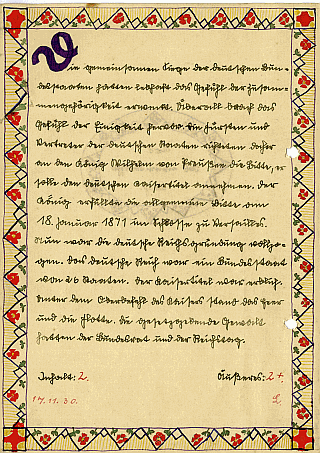 Die gemeinsamen Siege der deutschen Bun-
desstaaten hatten lebhaft das Gefühl der Zusam-
mengehörigkeit erweckt. Überall brach das
Gefühl der Einigkeit hervor. Die Fürsten und
Vertreter der deutschen Staaten richteten daher
an den König Wilhelm von Preußen die Bitte, er
solle den deutschen Kaisertitel annehmen. Der
König erfüllte die allgemeine Bitte am
18. Januar 1871 im Schlosse zu Versailles.
Nun war die deutsche Reichsgründung vollzo-
gen. Das deutsche Reich war ein Bundesstaat
von 26 Staaten. Der Kaisertitel war erblich.
Unter dem Oberbefehl des Kaisers stand das Heer
und die Flotte. Die gesetzgebende Gewalt
hatten der Bundesrat und der Reichstag.
Inhalt: 2. Äußeres: 2+
17.11.30.